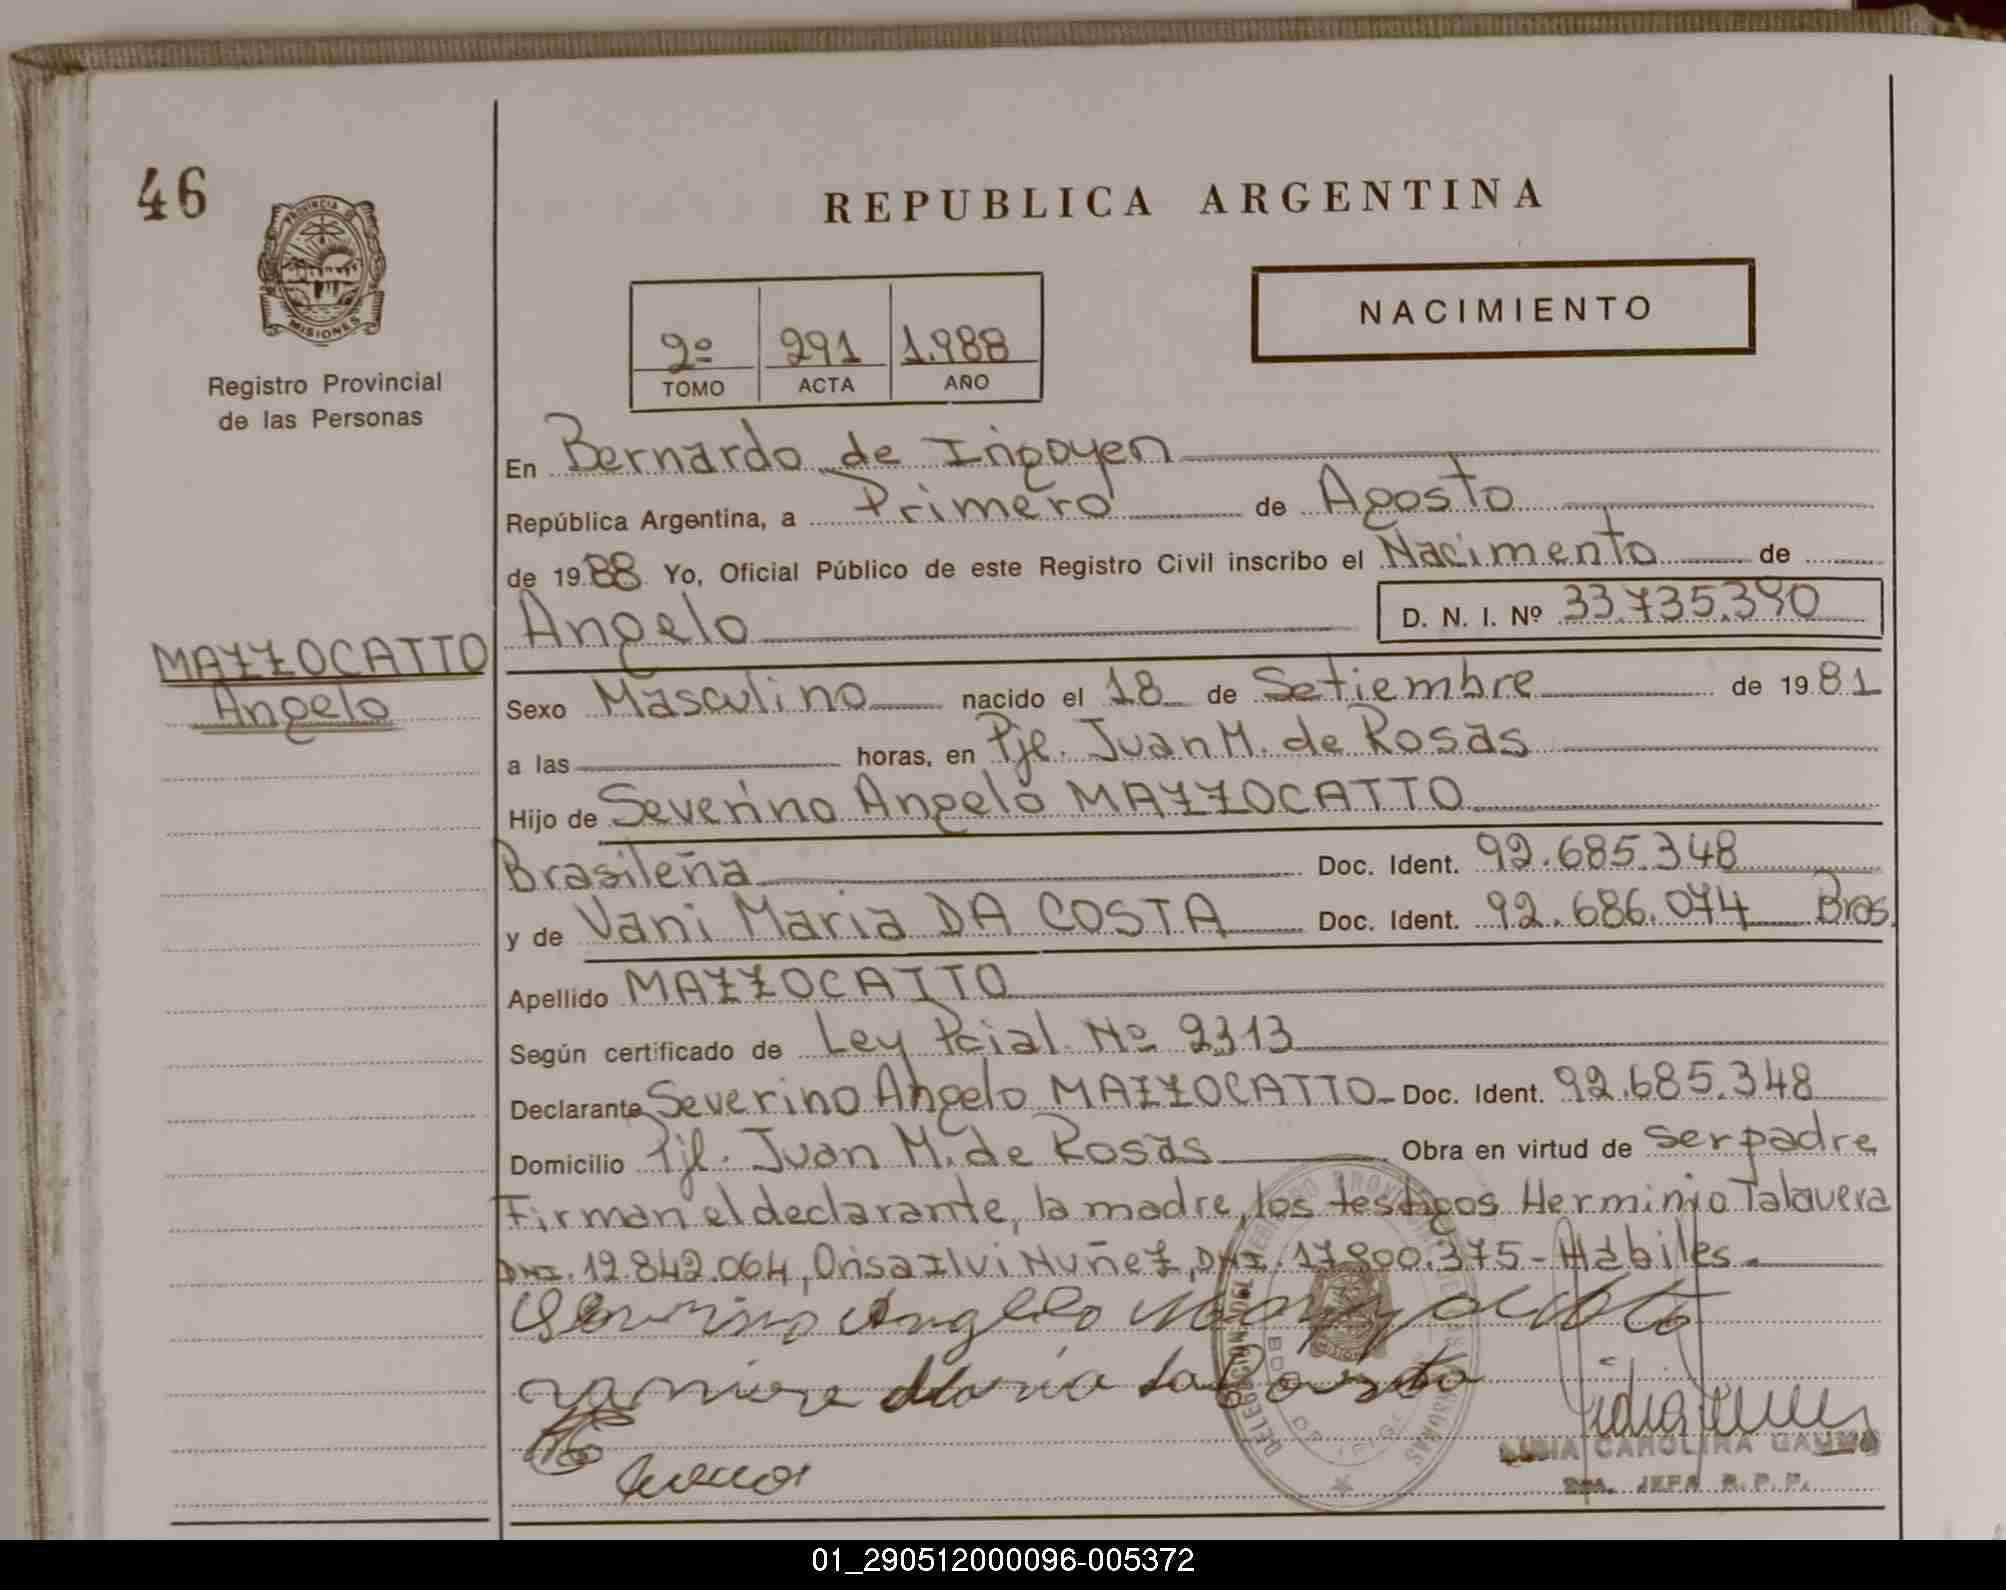 46
PROVINCIA DE
MISIONES
Registro Provincial
de las Personas
REPUBLICA ARGENTINA
NACIMIENTO
2º 291 1.988
TOMO ACTA AÑO
En Bernardo de Irigoyen
República Argentina, a Primero de Agosto
de 1988 Yo, Oficial Público de este Registro Civil inscribo el Nacimento de
Angelo D. N. I. Nº 33.735.390
MAZZOCATTO
Angelo
Sexo Masculino nacido el 18 de Setiembre de 1981
a las horas, en Pje. Juan M. de Rosas
Hijo de Severino Angelo MAZZOCATTO
Brasileña Doc. Ident. 92.685.348
y de Vani Maria DA COSTA Doc. Ident. 92.686.074 Bras.
Apellido MAZZOCATTO
Según certificado de Ley Pcial. Nº 2313
Declarante Severino Angelo MAZZOCATTO Doc. Ident. 92.685.348
Domicilio Pje. Juan M. de Rosas Obra en virtud de ser padre
Firman el declarante, la madre, los testigos Herminio Talavera
DNI. 12.842.064, Orisa Ilvi Nuñez, DNI. 17.800.375 - Hábiles.
LIDIA CAROLINA
JEFA R. P. P.
01_290512000096-005372